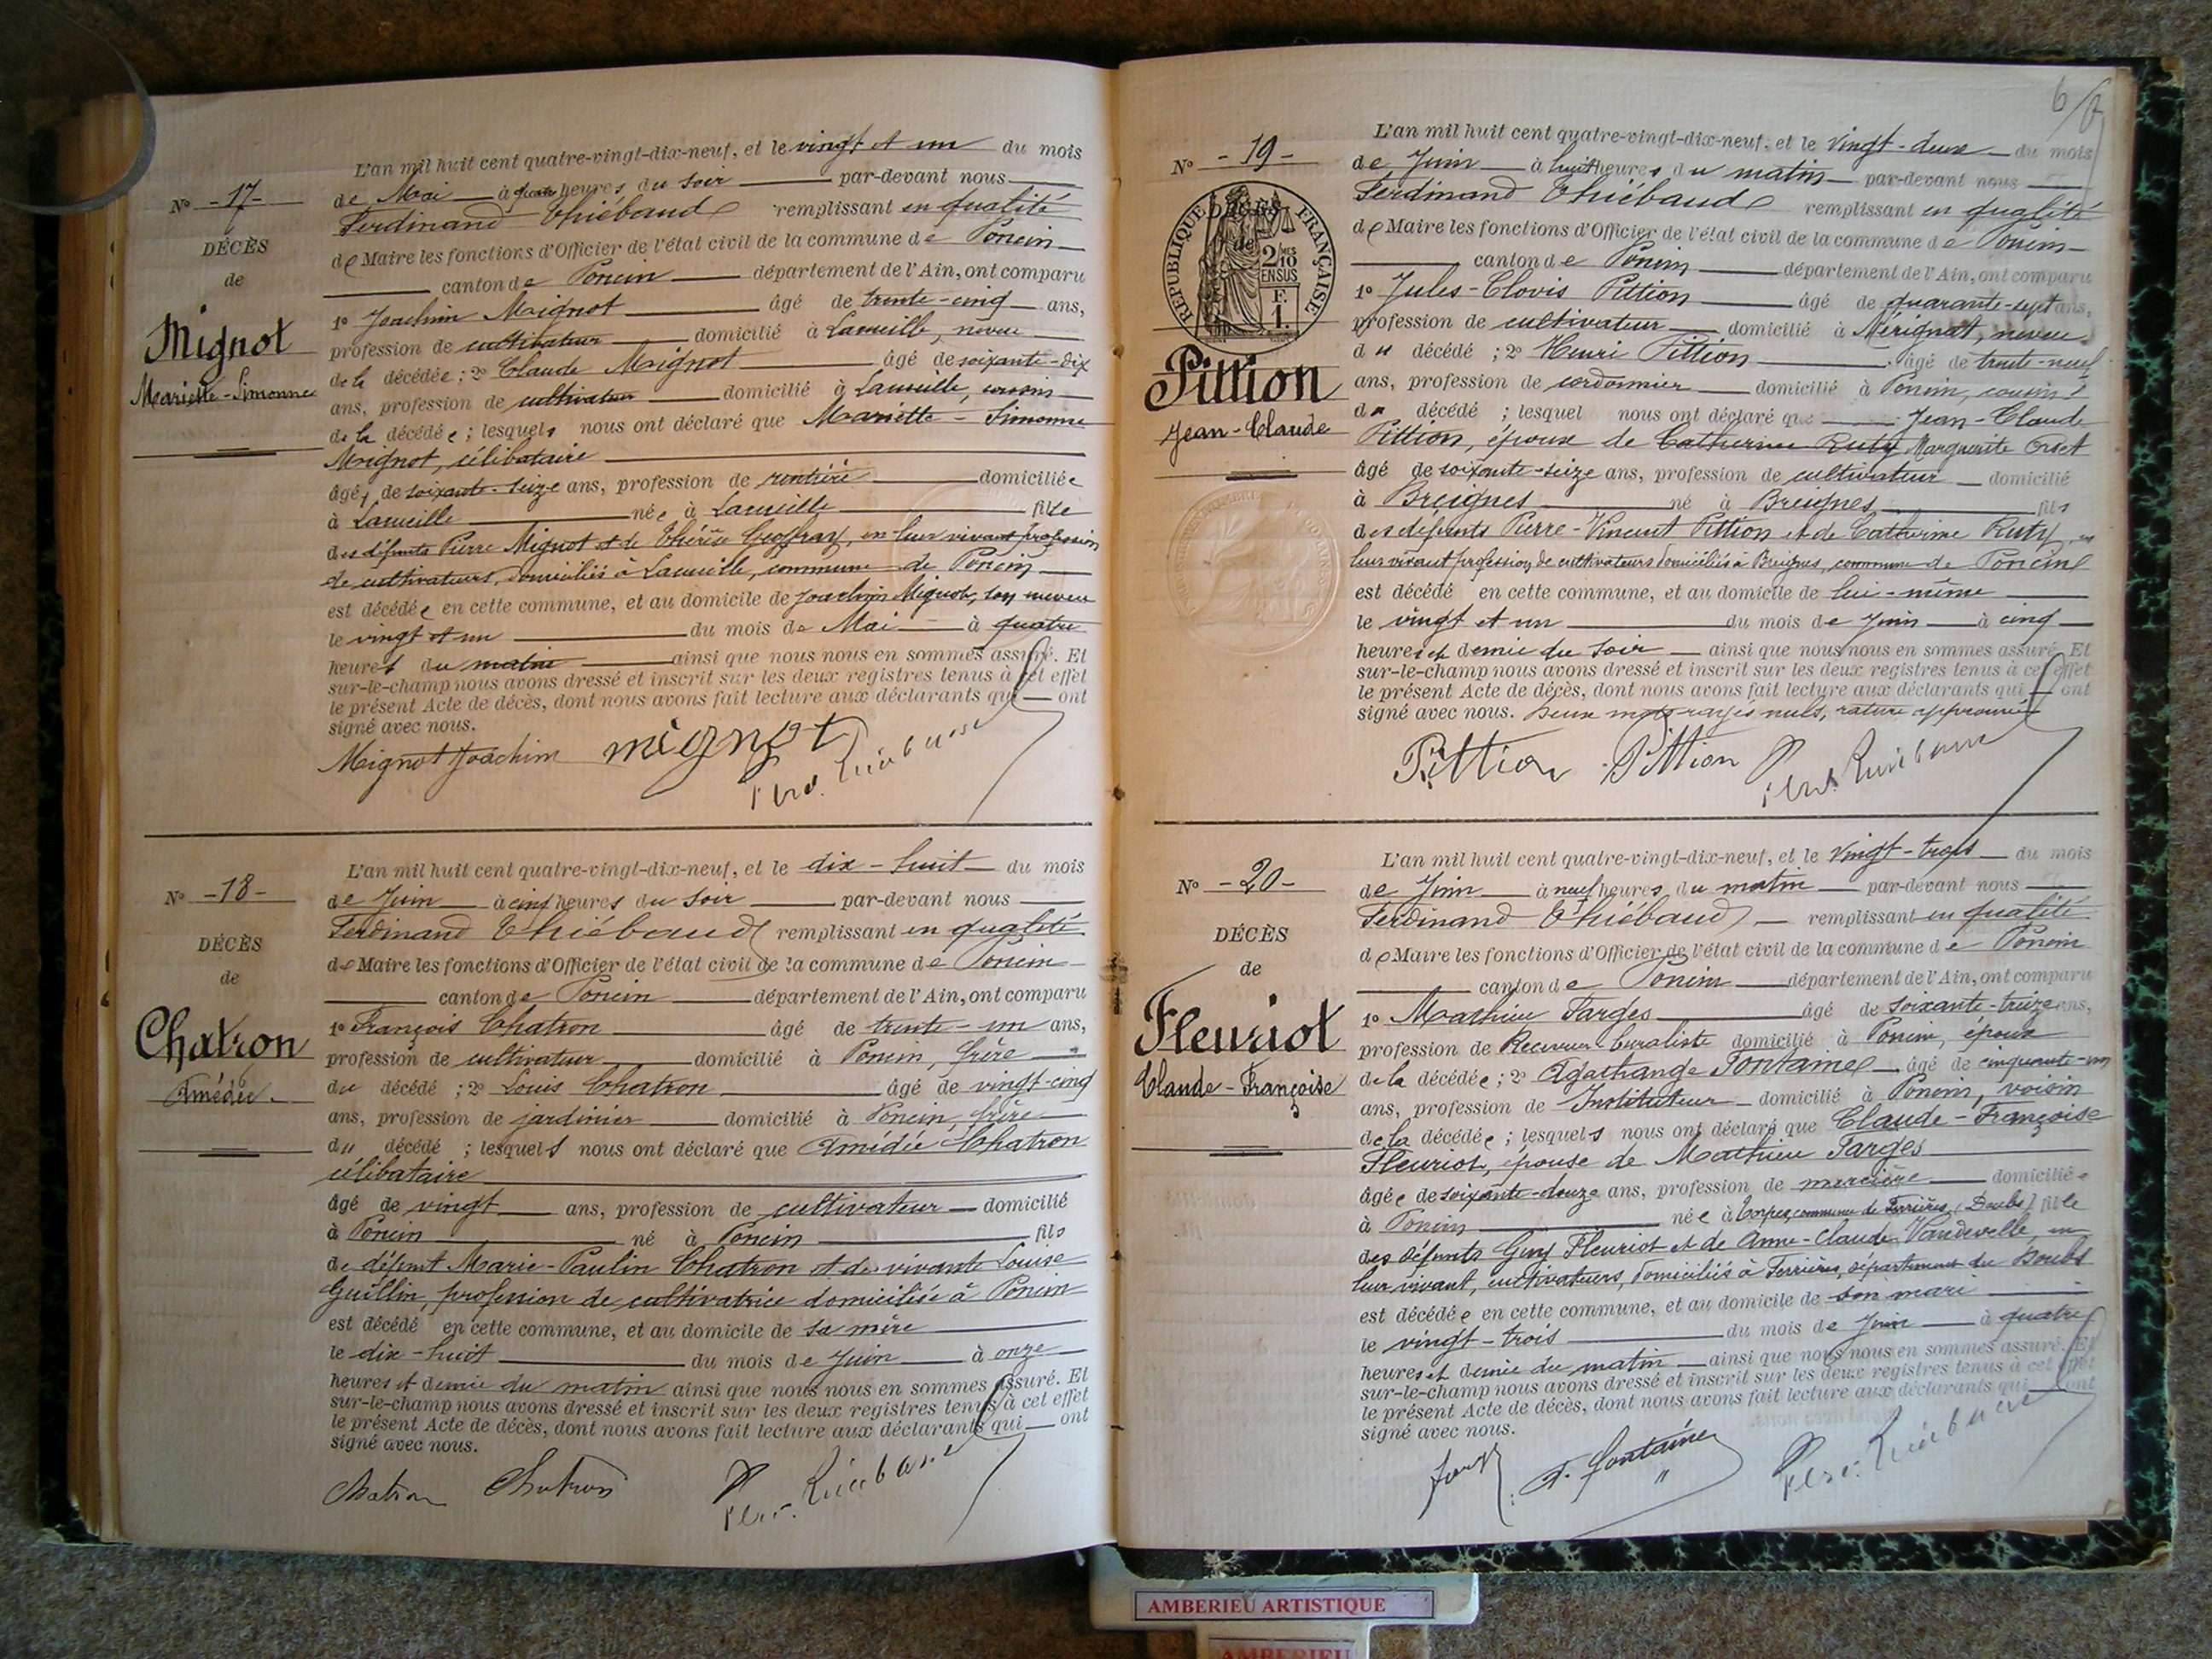 N° -17-
DÉCÈS
de
Mignot
Mariette-Simonne
L'an mil huit cent quatre-vingt-dix-neuf, et le vingt et un du mois
de Mai à quatre heures du soir par-devant nous
Ferdinand Thiébaud remplissant en qualité
de Maire les fonctions d'Officier de l'état civil de la commune de Poncin
canton de Poncin département de l'Ain, ont comparu
1° Joachim Mignot âgé de trente-cinq ans,
profession de cultivateur domicilié à Lameille, neveu
de la décédée ; 2° Claude Mignot âgé de soixante-dix
ans, profession de cultivateur domicilié à Lameille, cousin
de la décédée ; lesquels nous ont déclaré que Mariette - Simonne
Mignot, célibataire
âgée de soixante-seize ans, profession de rentière domiciliée
à Lameille née à Lameille fille
des défunts Pierre Mignot et de Thérèse Geoffray, en leur vivant profession
de cultivateurs, domiciliés à Lameille, commune de Poncin
est décédée en cette commune, et au domicile de Joachim Mignot, son neveu
le vingt et un du mois de Mai à quatre
heures du matin ainsi que nous nous en sommes assuré. Et
sur-le-champ nous avons dressé et inscrit sur les deux registres tenus à cet effet
le présent Acte de décès, dont nous avons fait lecture aux déclarants qui ont
signé avec nous.
Mignot Joachim mignot Ferd. Thiébaud
N° -18-
DÉCÈS
de
Chatron
Amédée
L'an mil huit cent quatre-vingt-dix-neuf, et le dix-huit du mois
de Juin à cinq heures du soir par-devant nous
Ferdinand Thiébaud remplissant en qualité
de Maire les fonctions d'Officier de l'état civil de la commune de Poncin
canton de Poncin département de l'Ain, ont comparu
1° François Chatron âgé de trente-un ans,
profession de cultivateur domicilié à Poncin, frère
du décédé ; 2° Louis Chatron âgé de vingt-cinq
ans, profession de jardinier domicilié à Poncin, frère
du décédé ; lesquels nous ont déclaré que Amédée Chatron
célibataire
âgé de vingt ans, profession de cultivateur domicilié
à Poncin né à Poncin fils
de défunt Marie-Paulin Chatron et de vivante Louise
Guillin, profession de cultivatrice domiciliée à Poncin
est décédé en cette commune, et au domicile de sa mère
le dix-huit du mois de Juin à onze
heures et demie du matin ainsi que nous nous en sommes assuré. Et
sur-le-champ nous avons dressé et inscrit sur les deux registres tenus à cet effet
le présent Acte de décès, dont nous avons fait lecture aux déclarants qui ont
signé avec nous.
Chatron Chatron Ferd. Thiébaud
6
N° -19-
RÉPUBLIQUE FRANÇAISE
2/10 EN SUS
F. 1.
Pittion
Jean-Claude
L'an mil huit cent quatre-vingt-dix-neuf, et le vingt-deux du mois
de Juin à huit heures du matin par-devant nous
Ferdinand Thiébaud remplissant en qualité
de Maire les fonctions d'Officier de l'état civil de la commune de Poncin
canton de Poncin département de l'Ain, ont comparu
1° Jules-Clovis Pittion âgé de quarante-sept ans,
profession de cultivateur domicilié à Mérignat, neveu
du décédé ; 2° Henri Pittion âgé de trente-neuf
ans, profession de cordonnier domicilié à Poncin, cousin
du décédé ; lesquel nous ont déclaré que Jean-Claude
Pittion, époux de Catherine Ruty Marguerite Orset
âgé de soixante-seize ans, profession de cultivateur domicilié
à Breignes né à Breignes fils
des défunts Pierre-Vincent Pittion et de Catherine Ruty, en
leur vivant profession de cultivateurs domiciliés à Breignes, commune de Poncin
est décédé en cette commune, et au domicile de lui-même
le vingt et un du mois de Juin à cinq
heures et demie du soir ainsi que nous nous en sommes assuré. Et
sur-le-champ nous avons dressé et inscrit sur les deux registres tenus à cet effet
le présent Acte de décès, dont nous avons fait lecture aux déclarants qui ont
signé avec nous. Deux mots rayés nuls, rature approuvée
Pittion Pittion Ferd. Thiébaud
N° -20-
DÉCÈS
de
Fleuriot
Claude-Françoise
L'an mil huit cent quatre-vingt-dix-neuf, et le vingt-trois du mois
de Juin à neuf heures du matin par-devant nous
Ferdinand Thiébaud remplissant en qualité
de Maire les fonctions d'Officier de l'état civil de la commune de Poncin
canton de Poncin département de l'Ain, ont comparu
1° Mathieu Farges âgé de soixante-treize ans,
profession de Receveur buraliste domicilié à Poncin, époux
de la décédée ; 2° Agathange Fontaine âgé de cinquante-un
ans, profession de Instituteur domicilié à Poncin, voisin
de la décédée ; lesquels nous ont déclaré que Claude-Françoise
Fleuriot, épouse de Mathieu Farges
âgée de soixante-douze ans, profession de mercière domiciliée
à Poncin née à Torpes, commune de Ferrières, (Doubs) fille
des défunts Guy Fleuriot et de Anne-Claude Vandevelle, en
leur vivant, cultivateurs, domiciliés à Ferrières, département du Doubs
est décédée en cette commune, et au domicile de son mari
le vingt-trois du mois de Juin à quatre
heures et demie du matin ainsi que nous nous en sommes assuré. Et
sur-le-champ nous avons dressé et inscrit sur les deux registres tenus à cet effet
le présent Acte de décès, dont nous avons fait lecture aux déclarants qui ont
signé avec nous.
A. Fontaine Ferd. Thiébaud
AMBERIEU ARTISTIQUE
AMBERIEU